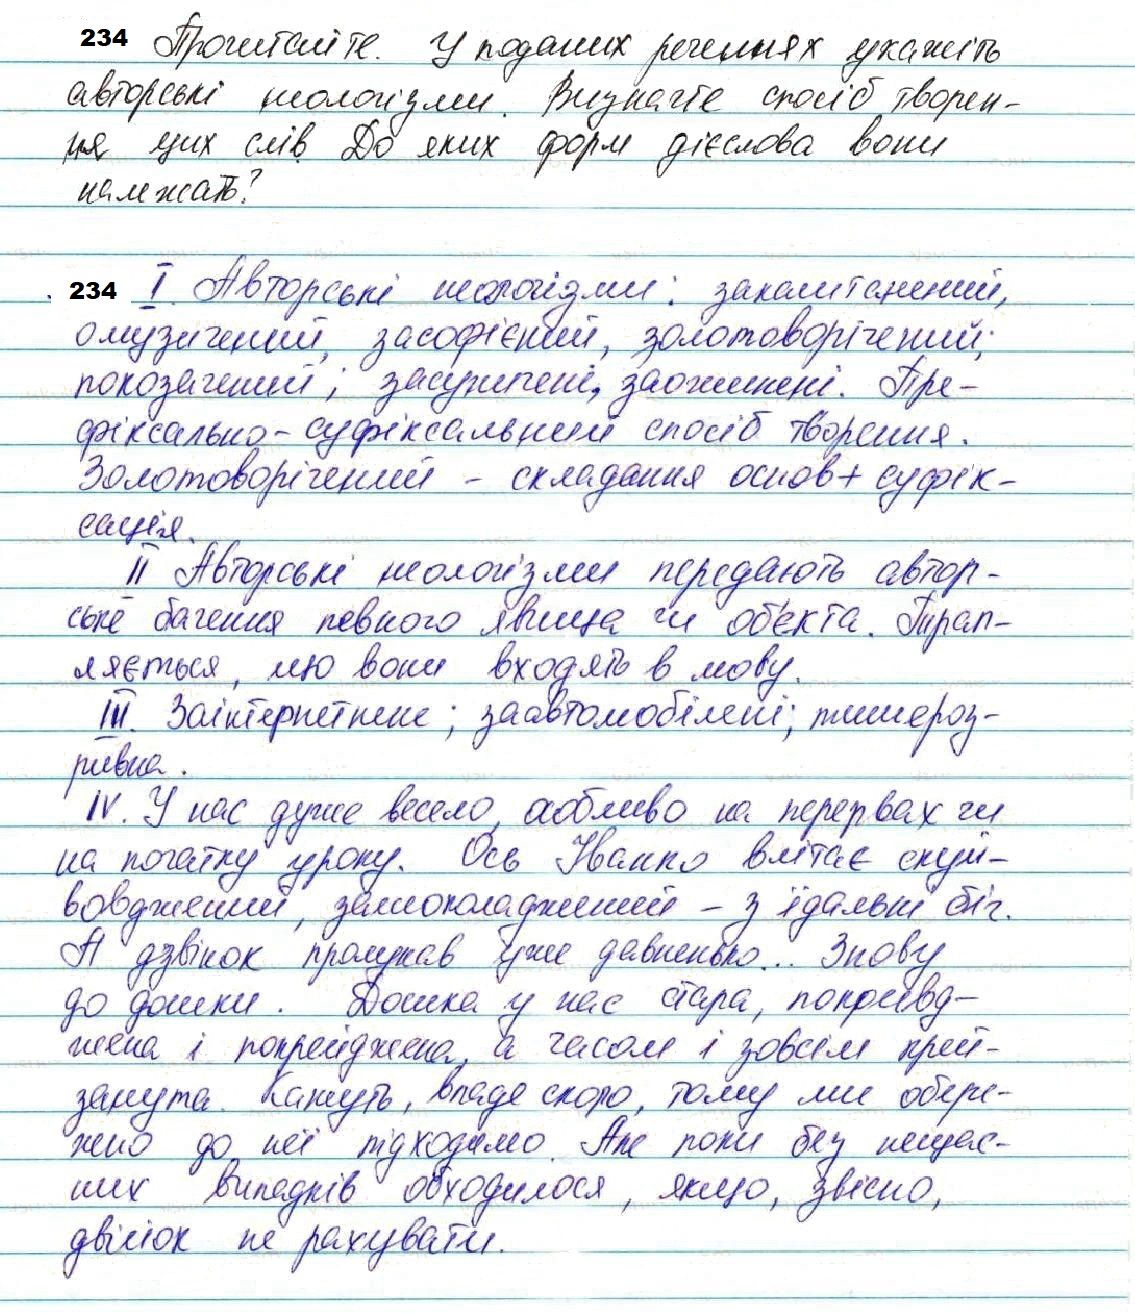 234 Прочитайте. У поданих реченнях укажіть
авторські неологізми. Визначте спосіб творен-
ня цих слів. До яких форм дієслова вони
належать?
234 I. Авторські неологізми: закаштанений,
омузичений, засофієний, золотоворічений;
покозачений; засуничені, заожинені. Пре-
фіксально-суфіксальний спосіб творення.
Золотоворічений - складання основ + суфік-
сація.
II Авторські неологізми передають автор-
ське бачення певного явища чи об'єкта. Трап-
ляється, що вони входять в мову.
III. Заінтернетнене; заавтомобілені; тишероз-
ривна.
IV. У нас дуже весело, особливо на перервах чи
на початку уроку. Ось Іванко влітає скуй-
вовджений, запополаджений - з їдальні біг.
А дзвінок пролунав уже давненько... Знову
до дошки. Дошка у нас стара,
жена і покрейджена, а часом і зовсім крей-
занута. Кажуть, впаде скоро, тому ми обере-
жно до неї підходимо. Але поки без нещас-
них випадків обходилося, якщо, звісно,
двійок не рахувати.